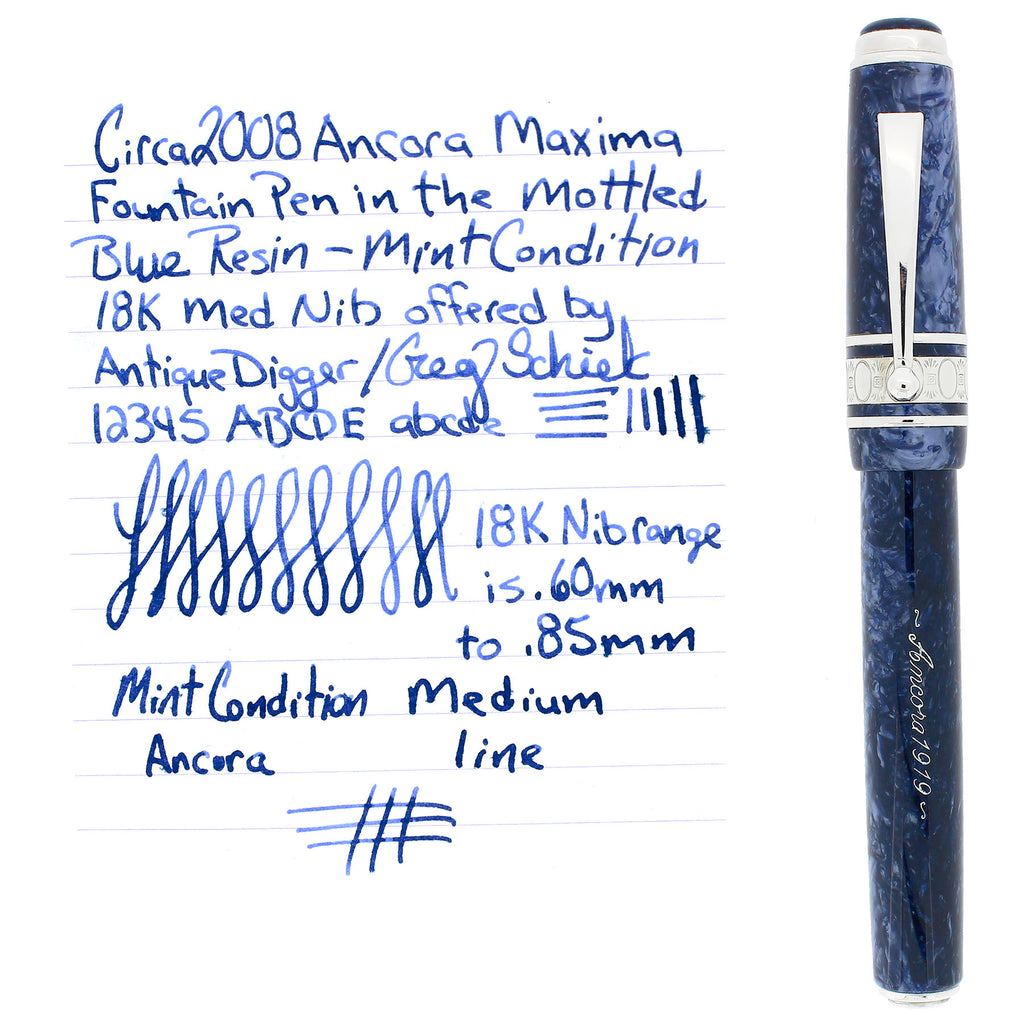 Circa 2008 Ancora Maxima
Fountain Pen in the Mottled
Blue Resin - Mint Condition
18K Med Nib offered by
Antique Digger / Greg Schiek
12345 ABCDE abcde
18K Nib range
is .60mm
to .85mm
Mint Condition Medium
Ancora line
~ Ancora 1919 ~